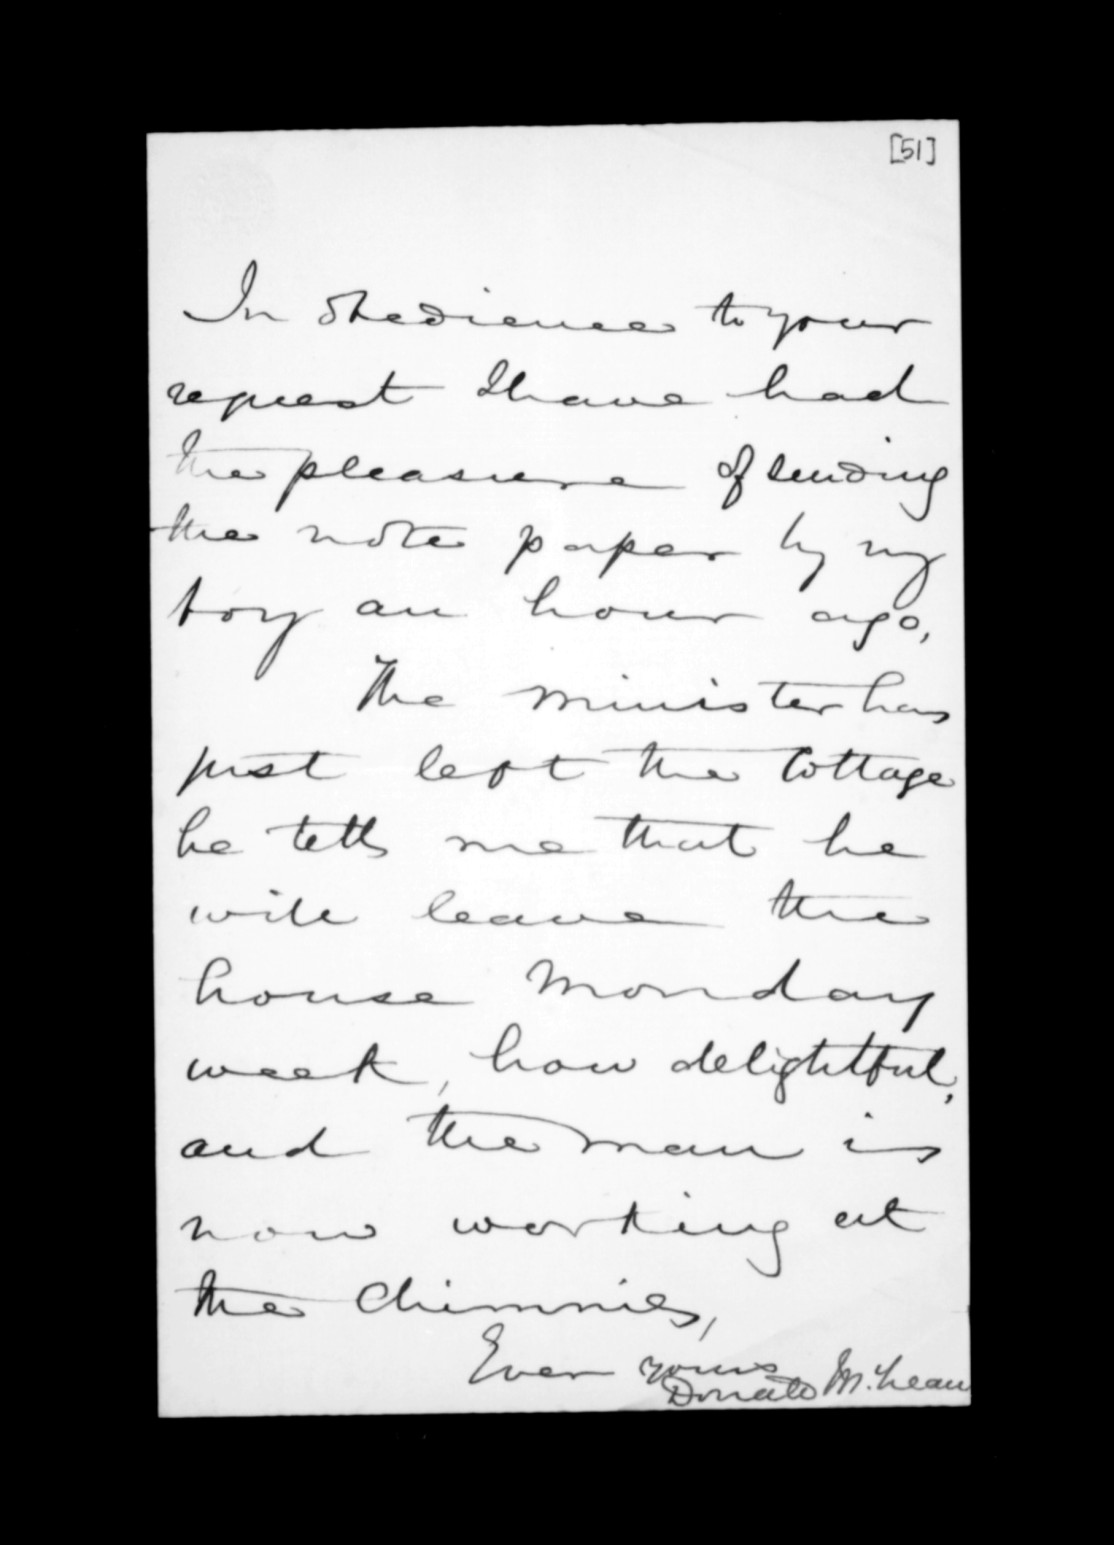 [51]
In obedience to your
request I have had
the pleasure of sending
the note paper by my
boy an hour ago,
The minister has
just left the Cottage
he tells me that he
will leave the
house Monday
week, how delightful,
and the man is
now working at
the Chimnies,
Ever yours
Donald McLean